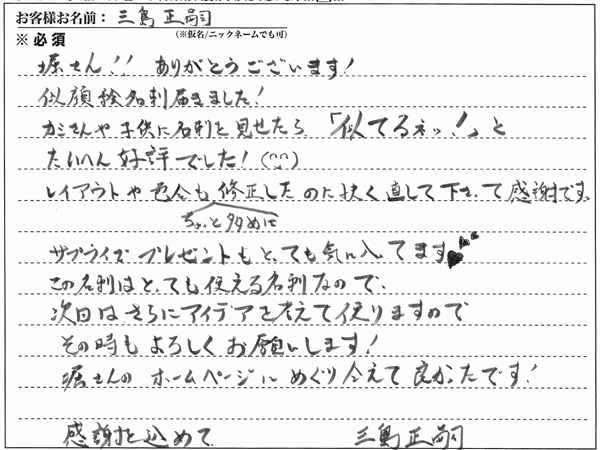 お客様お名前：三島正嗣
※必須 (※仮名/ニックネームでも可)
堀さん!! ありがとうございます!
似顔絵名刺届きました!
カミさんや子供に名刺を見せたら「似てるネッ!」と
たいへん好評でした! (^^)
レイアウトや色合も修正したのに快く直して下さって感謝です。
ちょっと多めに
サプライズプレゼントもとっても気に入ってます♥♥♥
この名刺はとっても使える名刺なので、
次回はさらにアイデアを考えて使りますので
その時もよろしくお願いします!
堀さんのホームページにめぐり会えて良かったです!
感謝を込めて 三島正嗣